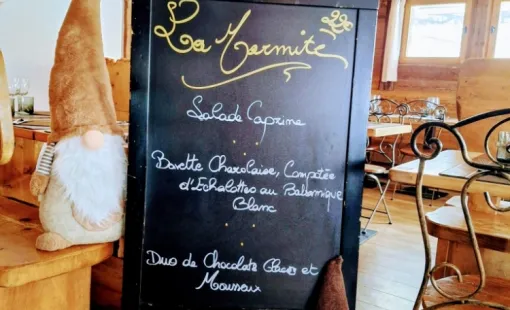 La Marmite
Salade Caprine
Bavette Charolaise, Compotée
d'Echalottes au Balsamique
Blanc
Duo de Chocolats Glacés et
Mousseux